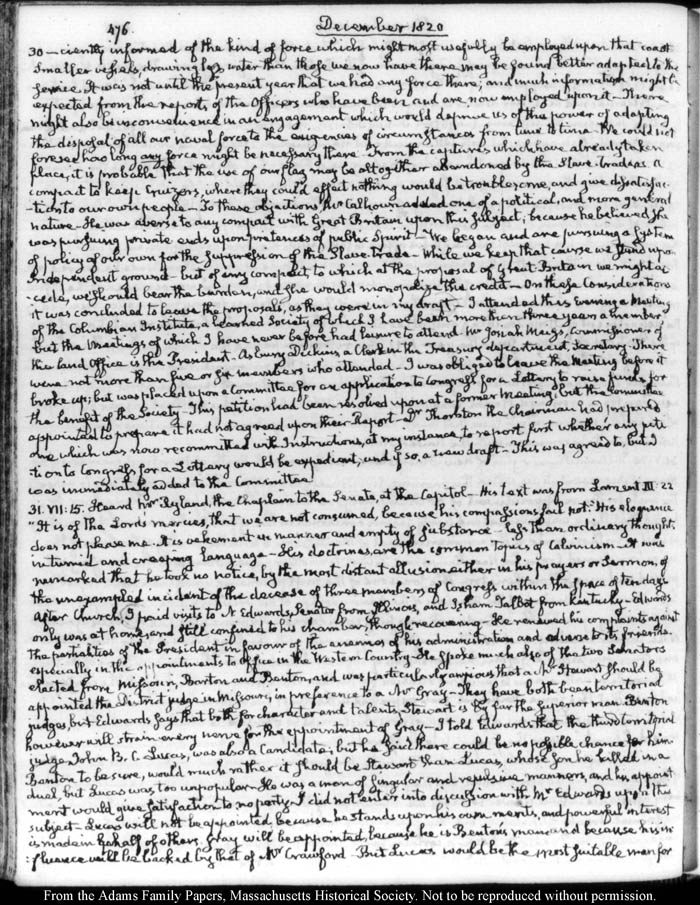 476.
December 1820
30 — ciently informed of the kind of force which might most usefully be employed upon that coast
Smaller vessels, drawing less water than those we now have there may be found better adapted to the
service. It was not until the present year that we had any force there; and much information might be
expected from the reports of the Officers who have been and are now employed upon it — There
might also be inconvenience in an engagement which would deprive us of the power of adapting
the disposal of all our naval force to the exigencies of circumstances from time to time. We could not
foresee how long any force might be necessary there. From the captures which have already taken
place, it is probable that the use of our flag may be altogether abandoned by the Slave-traders. A
compact to keep Cruizers, where they could effect nothing would be troublesome, and give dissatisfac-
-tion to our own people — To these objections Mr Calhoun added one of a political, and more general
nature — He was averse to any compact with Great-Britain upon this subject; because he believed she
was pursuing private ends upon pretences of public Spirit — We began and are pursuing a System
of policy of our own for the suppression of the Slave-trade — While we keep that course we stand upon
Independent ground — but of any compact, to which at the proposal of Great Britain we might ac-
-cede, we should bear the burden, and she would monopolize the credit — On these Considerations
it was concluded to leave the proposals, as they were in my draft — I attended this evening a Meeting
of the Columbian Institute, a learned Society of which I have been more than three years a member
but the Meetings of which I have never before had leisure to attend. Mr Josiah Meigs, Commissioner of
the land Office is the President. Asbury Dickins a Clerk in the Treasury department, Secretary. There
were not more than five or six members who attended — I was obliged to leave the Meeting before it
broke up; but was placed upon a Committee for an application to Congress for a Lottery to raise funds for
the benefit of the Society — This petition had been resolved upon at a former Meeting, but the Committee
appointed to prepare it had not agreed upon their Report — Dr Thornton the Chairman had prepared
one which was now recommitted with Instructions, at my instance, to report first whether any peti-
tion to Congress for a Lottery would be expedient, and if so, a new draft — This was agreed to, but I
was immediately added to the Committee
31. VII:15. Heard Mr Ryland, the Chaplain to the Senate, at the Capitol — His text was from Lament III. 22
"It is of the Lords mercies, that we are not consumed, because his compassions fail not." His eloquence
does not please me. It is vehement in manner and empty of substance — less than ordinary thought,
in turned and creeping language — His doctrines, are the common topics of Calvinism — It was
remarked that he took no notice, by the most distant allusion either in his prayers or Sermon, of
the unexampled incident of the decease of three members of Congress within the space of ten days
After Church, I paid visits to N. Edwards, Senator from Illinois, and Isham Talbot from Kentucky — Edwards
only was at home, and still confined to his chamber, though recovering — He renewed his complaints against
the partialities of the President in favour of the enemies of his administration and adverse to its friends.
especially in the appointments to Office in the Western Country — He spoke much also of the two Senators
elected from Missouri, Barton and Benton, and was particularly anxious that a Mr Stewart should be
appointed the District judge in Missouri, in preference to a Mr Gray — They have both been territorial
judges, but Edwards says that both for character and talents, Stewart is by far the superior man. Benton
however will strain every nerve for the appointment of Gray — I told Edwards that the third territorial
judge John B. C. Lucas, was also a Candidate; but he said there could be no possible chance for him.
Benton to be sure, would much rather it should be Stewart than Lucas, whose son he killed in a
duel, but Lucas was too unpopular — He was a man of singular and repulsive manners, and his appoint
ment would give satisfaction to no party. I did not enter into discussion with Mr Edwards upon this
subject — Lucas will not be appointed because he stands upon his own merits, and powerful interest
is made in behalf of others. Gray will be appointed, because he is Benton's man, and because his in-
-fluence will be backed by that of Mr Crawford — But Lucas would be the most suitable man for
From the Adams Family Papers, Massachusetts Historical Society. Not to be reproduced without permission.